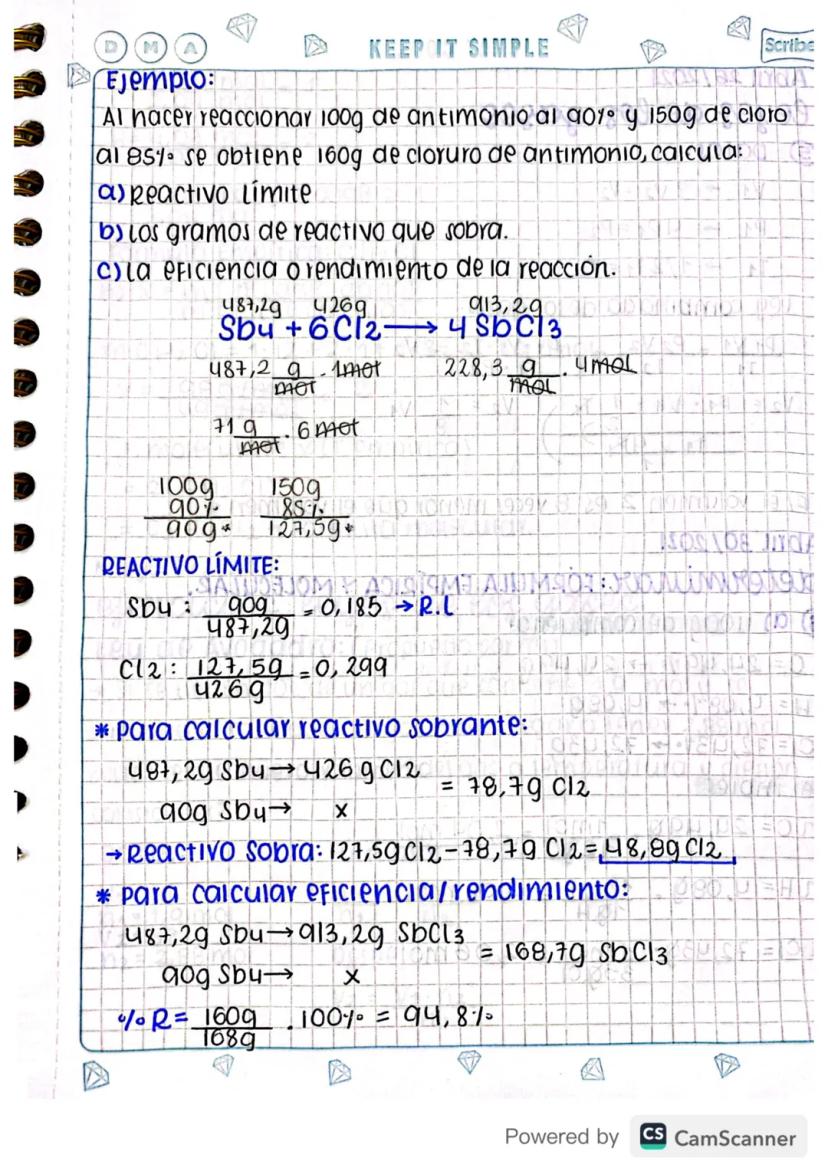 D M A KEEP IT SIMPLE Scribe
Ejemplo:
Al hacer reaccionar 100g de antimonio al 90% y 150g de cloro
al 85% se obtiene 160g de cloruro de antimonio, calcula:
a) Reactivo límite
b) Los gramos de reactivo que sobra.
c) La eficiencia o rendimiento de la reacción.
487,2g 426g 913,2g
Sb4 + 6Cl2 → 4 SbCl3
487,2 g/mol . 1mol 228,3 g/mol . 4mol
71 g/mol . 6 mol
100g 150g
90% 85%
90g* 127,5g*
REACTIVO LÍMITE:
Sb4 : 90g/487,2g = 0,185 → R.L
Cl2 : 127,5g/426g = 0,299
* Para calcular reactivo sobrante:
487,2g Sb4 → 426 g Cl2
= 78,7g Cl2
90g Sb4 → x
→ Reactivo sobra: 127,5g Cl2 - 78,7g Cl2 = 48,8g Cl2
* Para calcular eficiencia/rendimiento:
487,2g Sb4 → 913,2g SbCl3
= 168,7g SbCl3
90g Sb4 → x
% R = 160g/168g . 100% = 94,8%
Powered by CS CamScanner